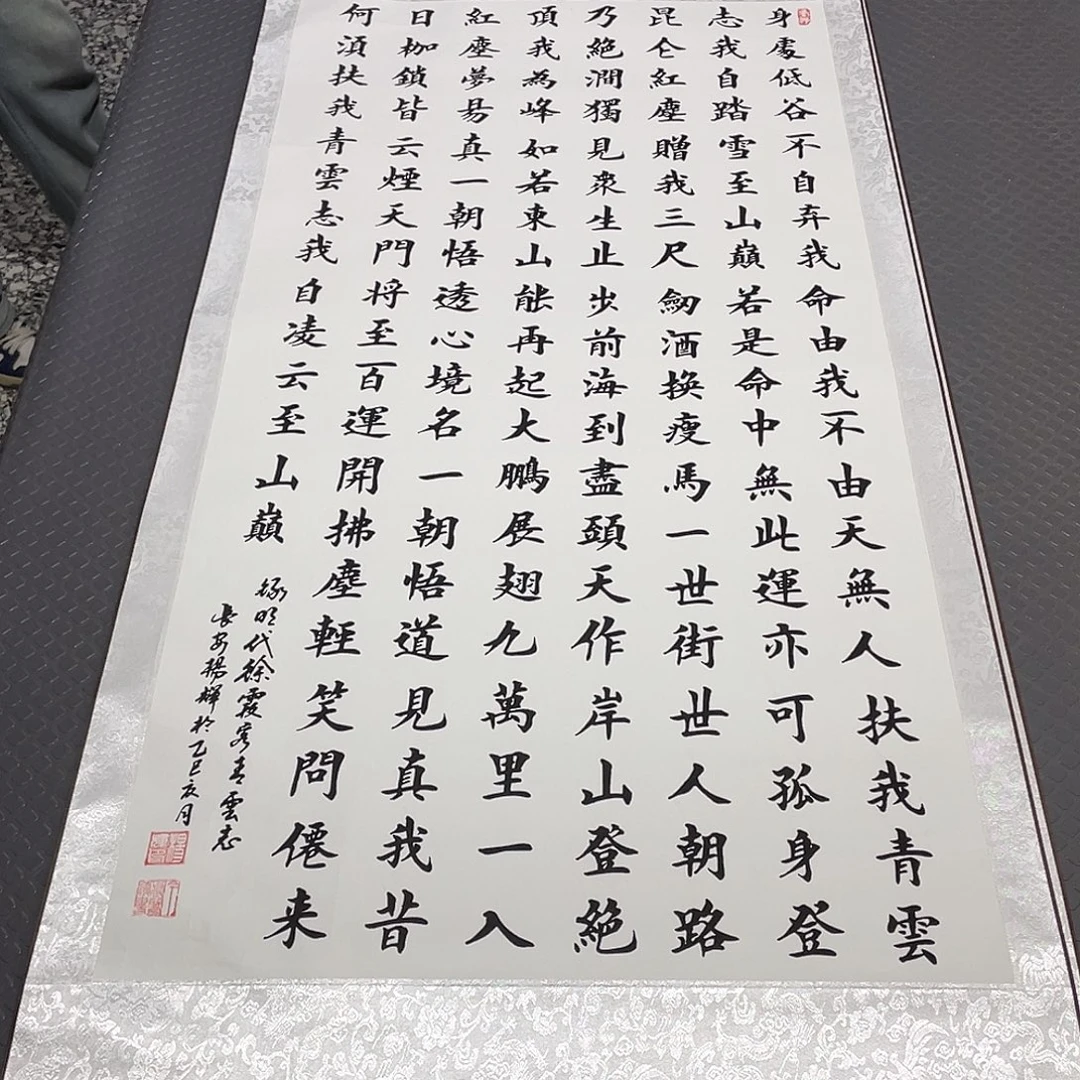 身處低谷不自弃我命由我不由天無人扶我青雲
志我自踏雪至山巔若是命中無此運亦可孤身登
昆仑紅塵贈我三尺劒酒換瘦馬一世街世人朝路
乃絕澗獨見衆生止步前海到盡頭天作岸山登絕
頂我為峰如若東山能再起大鵬展翅九萬里一入
紅塵夢易真一朝悟透心境名一朝悟道見真我昔
日枷鎖皆云煙天門将至百運開拂塵輕笑問僊来
何須扶我青雲志我自凌云至山巔
錄明代徐霞客青雲志
長安楊輝於乙巳友月